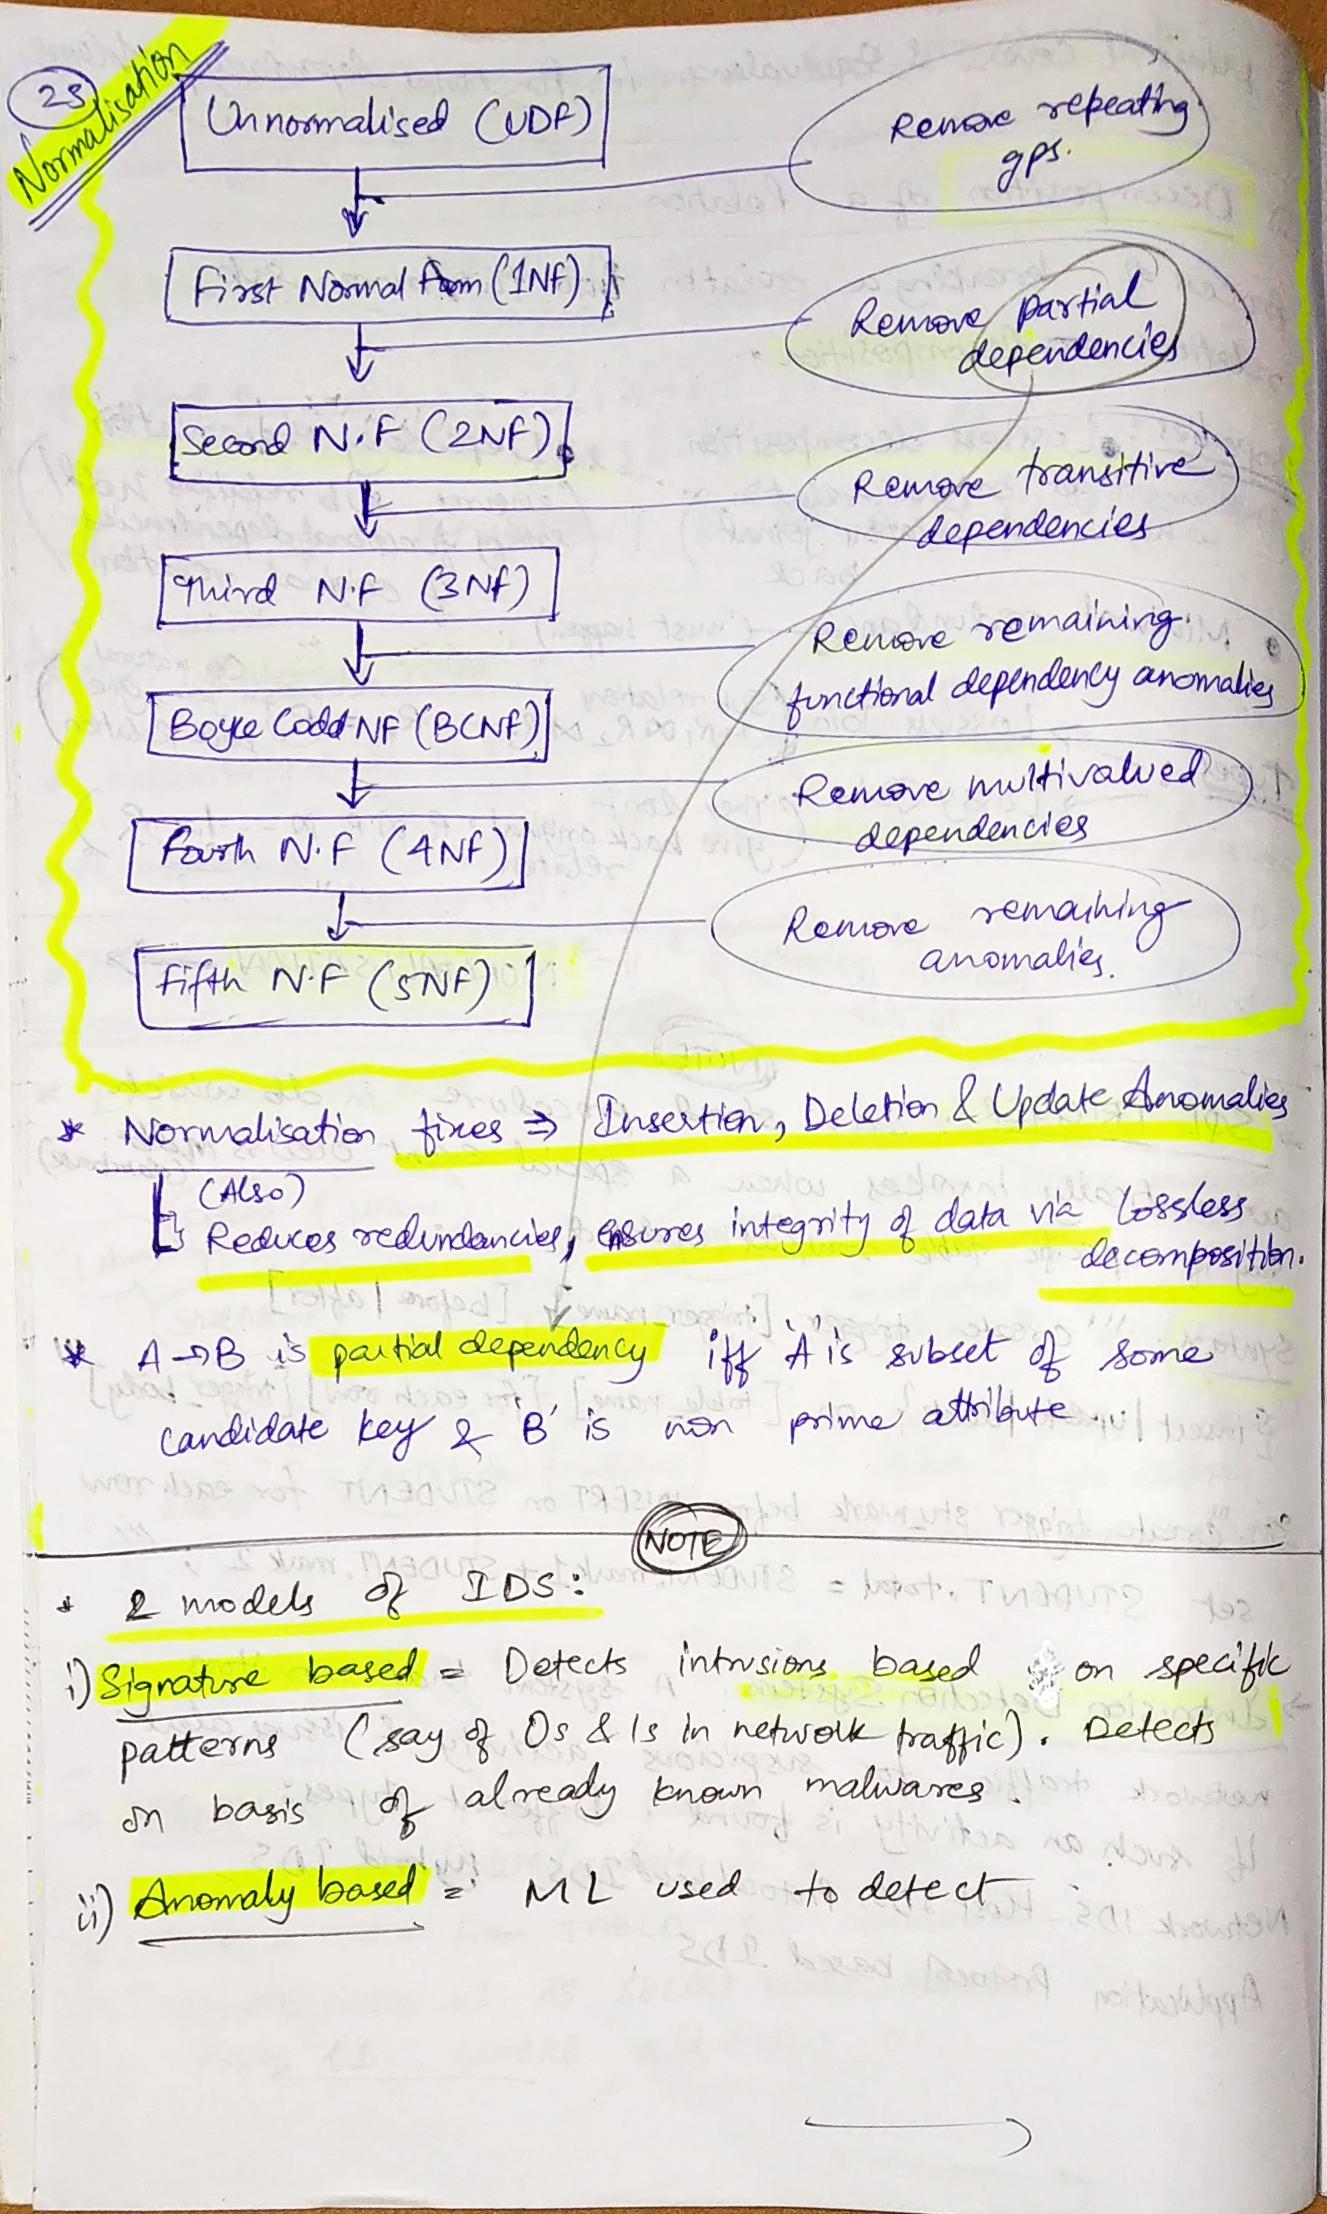 25
Normalisation
Unnormalised (UDF)
Remove repeating
gps.
First Normal Form (1NF)
Remove partial
dependencies
Second N.F (2NF)
Remove transitive
dependencies
Third N.F (3NF)
Remove remaining
functional dependency anomalies
Boyce Codd NF (BCNF)
Remove multivalued
dependencies
Fourth N.F (4NF)
Remove remaining
anomalies.
Fifth N.F (5NF)
* Normalisation fixes ⇒ Insertion, Deletion & Update Anomalies
(Also)
Reduces redundancies, ensures integrity of data via lossless
decomposition.
* A→B is partial dependency iff 'A' is subset of some
candidate key & 'B' is non prime attribute.
NOTE
* 2 models of IDS:
i) Signature based = Detects intrusions based on specific
patterns (say of 0s & 1s in network traffic). Detects
on basis of already known malwares.
ii) Anomaly based = ML used to detect